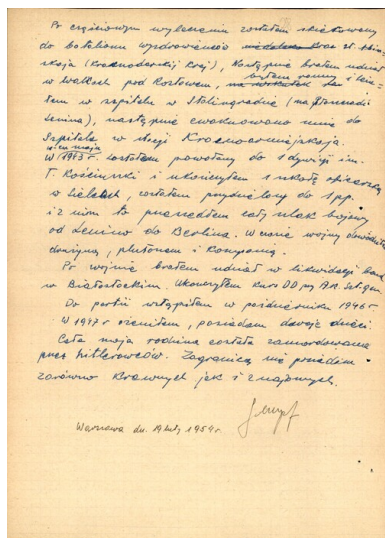 Po częściowym wyleczeniu zostałem skierowany
do batalionu wyzdrowieńców st.
skaja (Krasnodarskij Kraj), Następnie brałem udział
byłem ranny i
w walkach pod Rostowem,
łem w szpitalu w Stalingradzie (na
Lenina), następnie ewakuowano mnie do
Szpitala w stacji Krasnoarmiejskaja.
w m-cu maju
W 1943 r. zostałem powołany do 1 dywizji im.
T. Kościuszki i ukończyłem szkołę oficerską
w Sielcach, zostałem przydzielony do 1 pp.
i z nim to przeszedłem cały szlak bojowy
od Lenino do Berlina. W czasie wojny dowodziłem
drużyną, plutonem i kompanią.
Po wojnie brałem udział w likwidacji band
w Białostockim. Ukończyłem kurs DO przy Szt. Gen.
Do partii wstąpiłem w październiku 1946 r
W 1947 r ożeniłem, posiadam dwoje dzieci.
Cała moja rodzina została zamordowana
przez hitlerowców. Zagranicą nie posiadam
zarówno krewnych jak i znajomych.
Warszawa dn. 19 luty 1954 r.